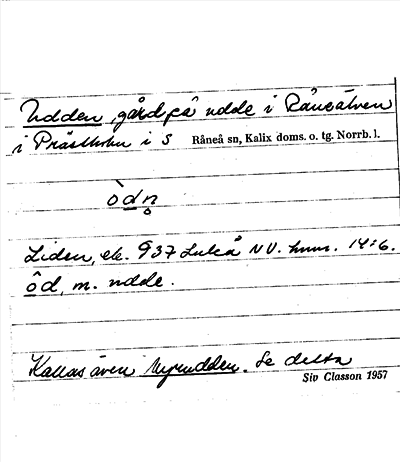 Udden, gård på udde i Råneälven
i Prästholm i S Råneå sn, Kalix doms. o. tg. Norrb. l.
òdn̥
Liden, ek. 937 Luleå NV. hmm. 14:6.
ôd, m. udde.
Kallas även Nyrudden. Se detta
Siv Classon 1957